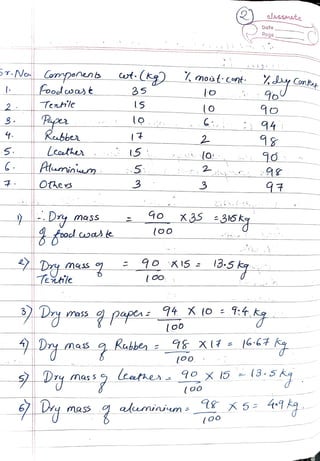 2
classmate
Date
Page
Sr.No. Components wt.(kg) % moist.cont. % dry Content
1. Food waste 35 10 90
2. Textile 15 10 90
3. Paper 10 6 94
4. Rubber 17 2 98
5. Leather 15 10 90
6. Aluminium 5 2 98
7. Others 3 3 97
1) ∴ Dry mass of food waste = 90/100 × 35 = 315 kg
2) Dry mass of Textile = 90/100 × 15 = 13.5 kg
3) Dry mass of paper = 94/100 × 10 = 9.4 kg
4) Dry mass of Rubber = 98/100 × 17 = 16.67 kg
5) Dry mass of Leather = 90/100 × 15 = 13.5 kg
6) Dry mass of aluminium = 98/100 × 5 = 4.9 kg